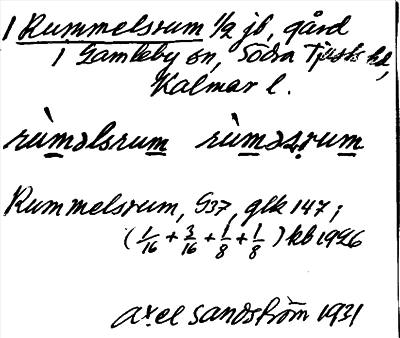 1 Rummelsrum 1/2 jb, gård
1 Gamleby sn, Södra Tjusts hd,
Kalmar l.
rùm̲əlsrum̲ rùm̲əṣrum̲
Rummelsrum, G37, glk 147;
(1/16 + 3/16 + 1/8 + 1/8) kb 1926
Axel Sandström 1931